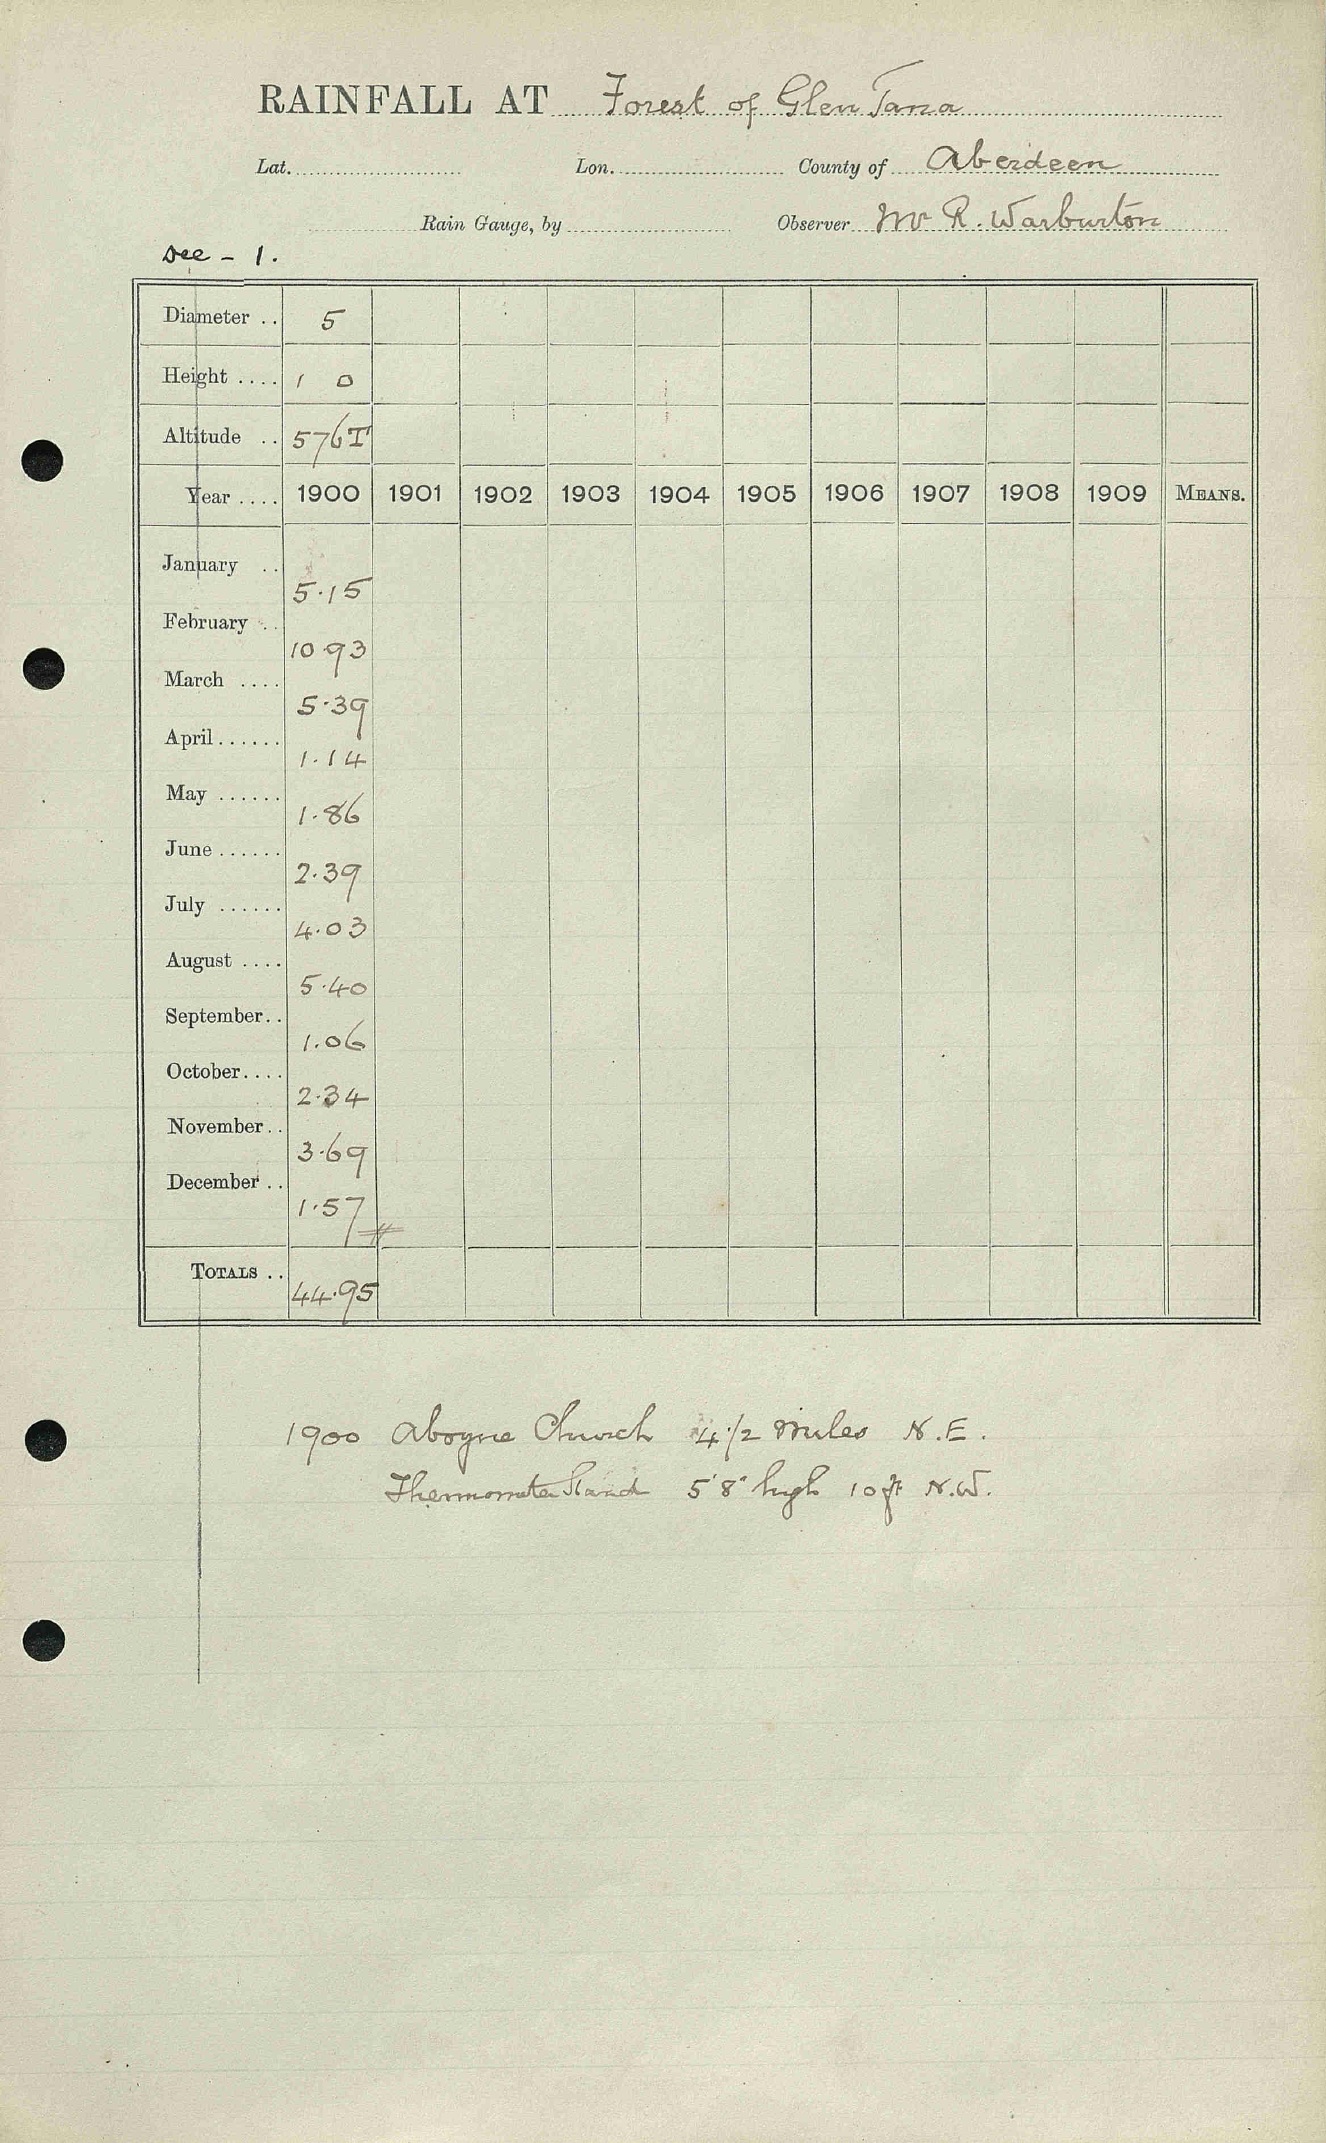 RAINFALL AT Forest of Glen Tana
Lat. Lon. County of Aberdeen
Rain Gauge, by Observer Mr R. Warburton
Dee - 1.
Diameter .. 5
Height .... 1 0
Altitude .. 576T
Year .... 1900 1901 1902 1903 1904 1905 1906 1907 1908 1909 MEANS.
January .. 5.15
February .. 10.93
March .... 5.39
April ...... 1.14
May ...... 1.86
June ...... 2.39
July ...... 4.03
August .... 5.40
September .. 1.06
October .... 2.34
November .. 3.69
December .. 1.57
TOTALS .. 44.95
1900 Aboyne Church 4 1/2 miles N.E.
Thermometer Stand 5'8" high 10 ft N.W.